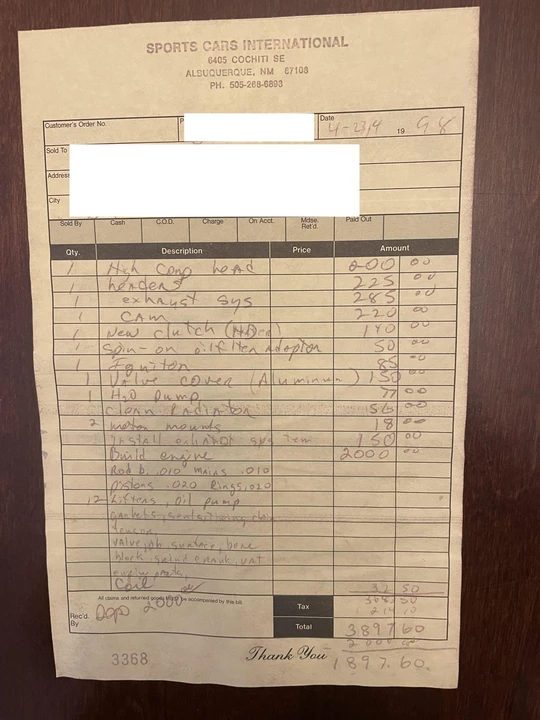 SPORTS CARS INTERNATIONAL
6405 COCHITI SE
ALBUQUERQUE, NM 87108
PH. 505-268-6893
Customer's Order No. Date 4-23 19 98
Sold To
Address
City
Sold By Cash C.O.D. Charge On Acct. Mdse. Ret'd. Paid Out
Qty. Description Price Amount
1 High Comp head 00
1 headers 225 00
1 exhaust sys 285 00
1 CAM 220 00
1 New clutch 140 00
1 Spin-on oil filter adaptor 50 00
1 Igniton 85 00
1 Valve cover (Aluminum) 150 00
1 H2O pump 77 00
Clean Radiator 00
2 motor mounts 18 00
Install exhaust system 150 00
Build engine 2000 00
Rod b. .010 mains .010
Pistons .020 Rings .020
12 Lifters, oil pump
gaskets,
block
Coil 32 50
All claims and returned goods MUST be accompanied by this bill.
Tax
Rec'd. By Depo 2000 Total 3897 60
2000
3368 Thank You 1897.60